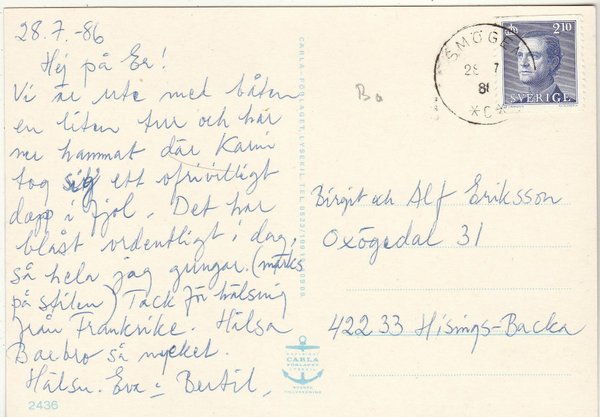 28.7.-86
Hej på Er!
Vi är ute med båten
en liten tur och har
nu hammat där Karin
tog sig ett ofrivilligt
dopp i fjol. Det har
blåst ordentligt i dag,
så hela jag gungar. (märks
på stilen) Tack för hälsning
från Frankrike. Hälsa
så mycket.
Hälsn. Eva o Bertil,
2436
CARLA-FÖRLAGET, LYSEKIL. TEL.
CARLA
FÖRLAGET
LYSEKIL
Ba
SMÖGEN
28 7
86
*C*
2.10
SVERIGE
Birgit och Alf Eriksson
Oxögedal 31
422 33 Hisings-Backa